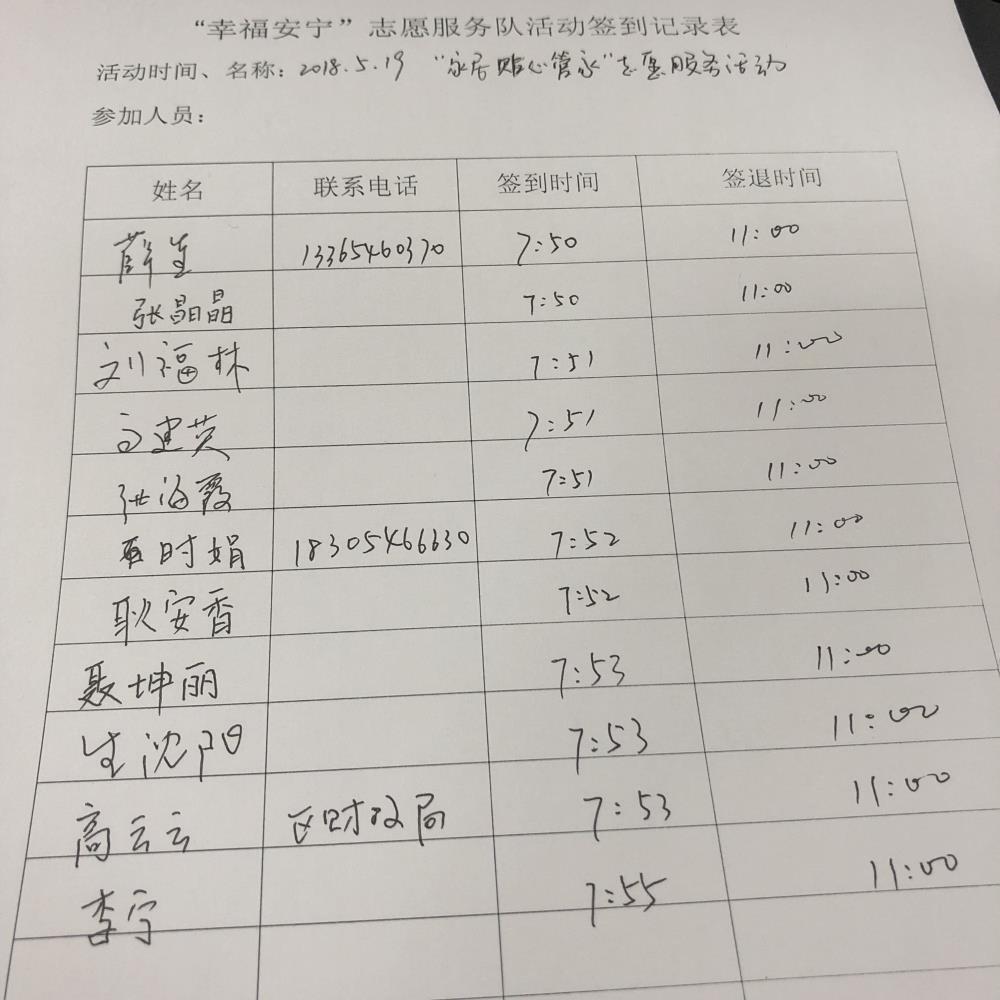 “幸福安宁”志愿服务队活动签到记录表
活动时间、名称：2018.5.19 “家居贴心管家”志愿服务活动
参加人员：
姓名 联系电话 签到时间 签退时间
薛生 13365460370 7:50 11:00
张晶晶 7:50 11:00
刘福林 7:51 11:00
建英 7:51 11:00
张海霞 7:51 11:00
时娟 18305466630 7:52 11:00
耿安香 7:52 11:00
聂坤丽 7:53 11:00
生沈阳 7:53 11:00
高云云 区财政局 7:53 11:00
李宁 7:55 11:00